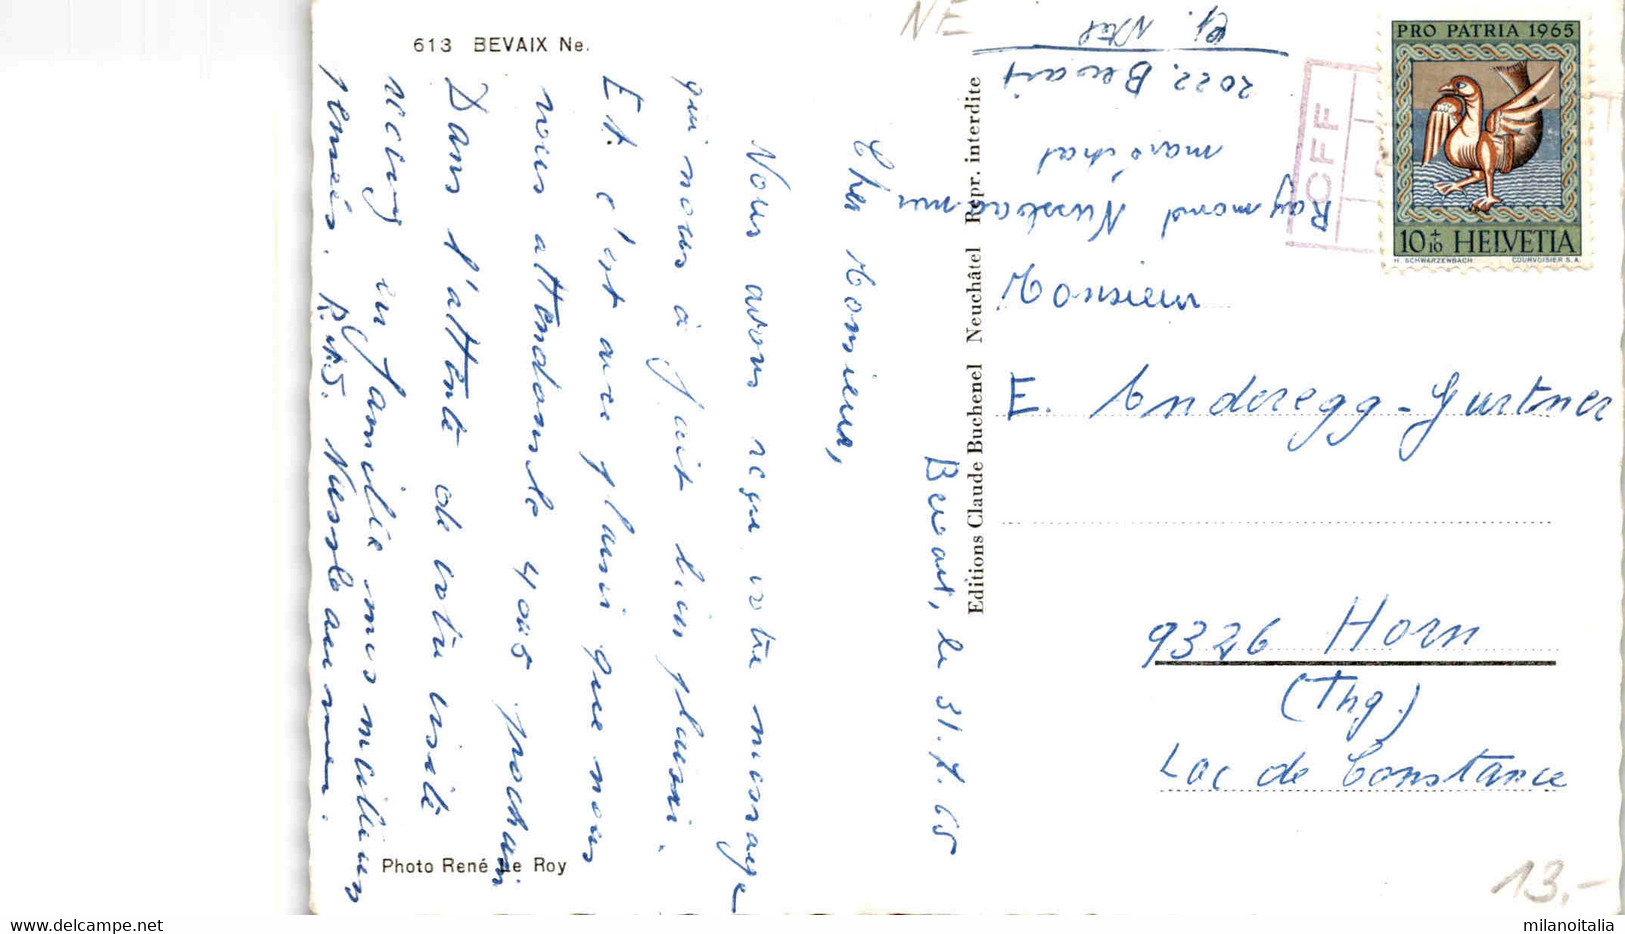 613 BEVAIX Ne.
Bevaix, le 31.7.65
Cher Monsieur,
Nous avons reçu votre message
qui nous à fait bien plaisir.
Et c'est avec plaisir que nous
vous attendons le 4 août prochain
Dans l'attente de votre visite
recevez en famille mes meilleurs
pensées. R. Nussbaumer.
Photo René Le Roy
Editions Claude Buchenel Neuchâtel Repr. interdite
Raymond Nussbaumer
maréchal
2022. Bevaix
Ct. Ntel
NE
OFF
PRO PATRIA 1965
10+10 HELVETIA
H. SCHWARZENBACH COURVOISIER S.A.
Monsieur
E. Anderegg-Gurtner
9326 Horn
(Thg.)
Lac de Constance
13.-
milanoitalia